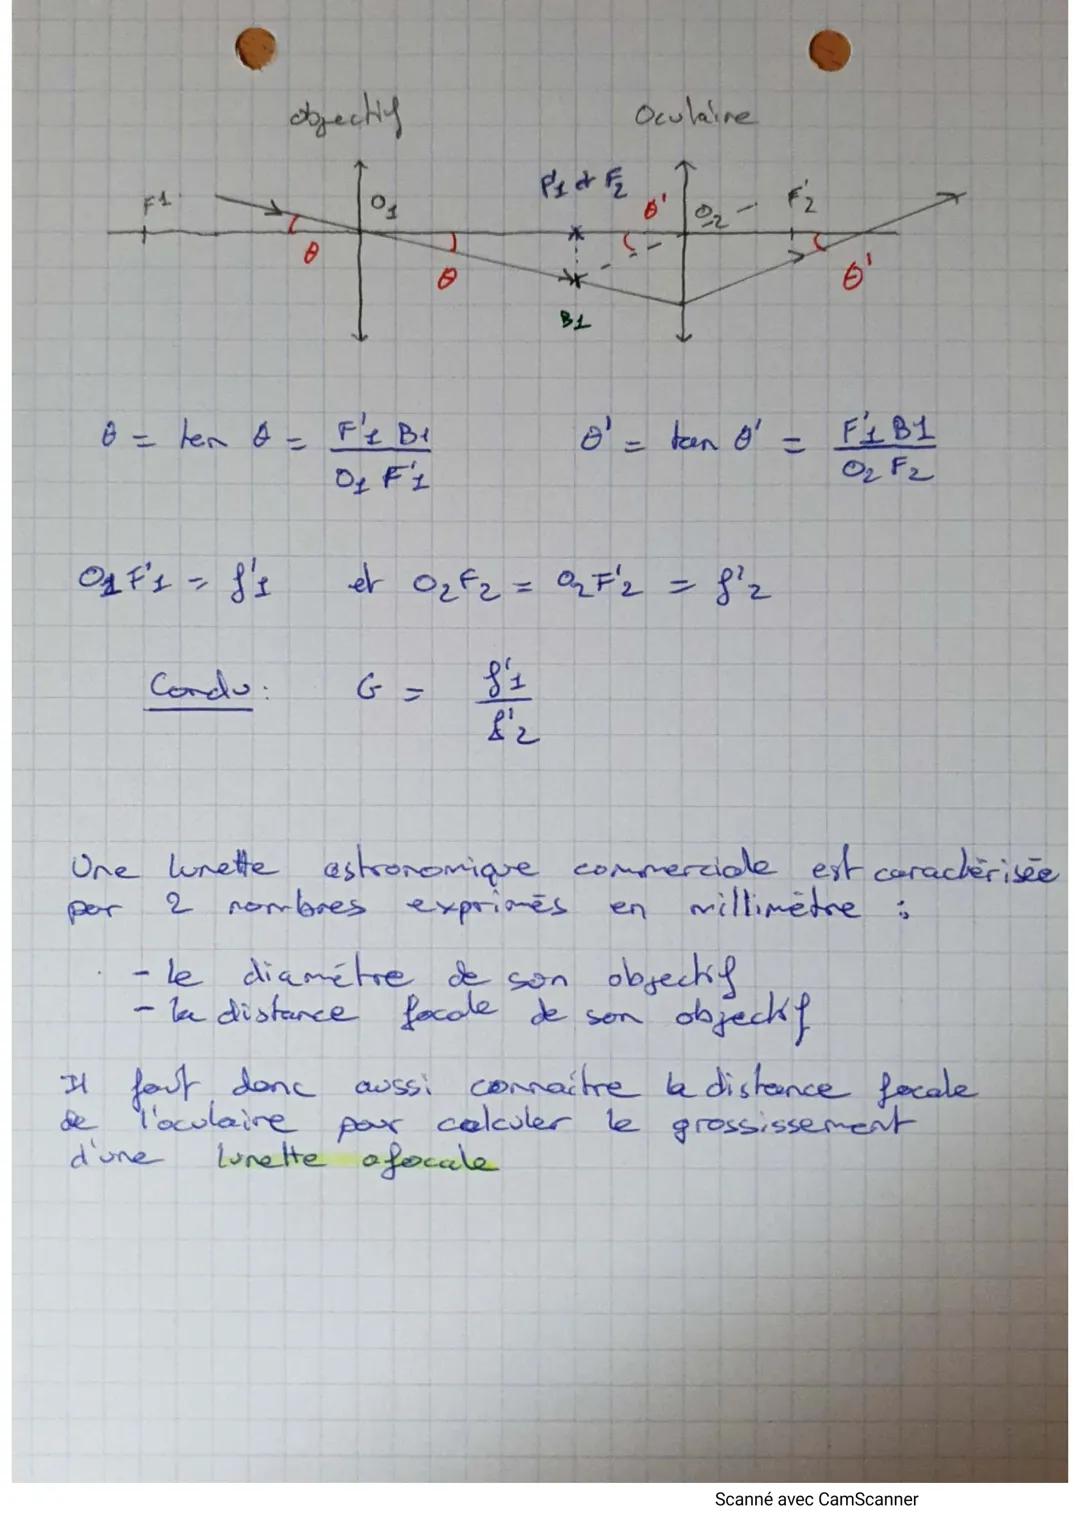 objectif Oculaire
F1 O1 F'1 et F2 θ' O2 F'2
θ θ θ'
B1
θ = tan θ = F'1 B1 / O1 F'1 θ' = tan θ' = F'1 B1 / O2 F2
O1F'1 = f'1 et O2F2 = O2F'2 = f'2
Conclu : G = f'1 / f'2
Une lunette astronomique commerciale est caractérisée
par 2 nombres exprimés en millimètre :
- le diamétre de son objectif
- la distance focale de son objectif
Il faut donc aussi connaitre la distance focale
de l'oculaire pour calculer le grossissement
d'une lunette afocale
Scanné avec CamScanner